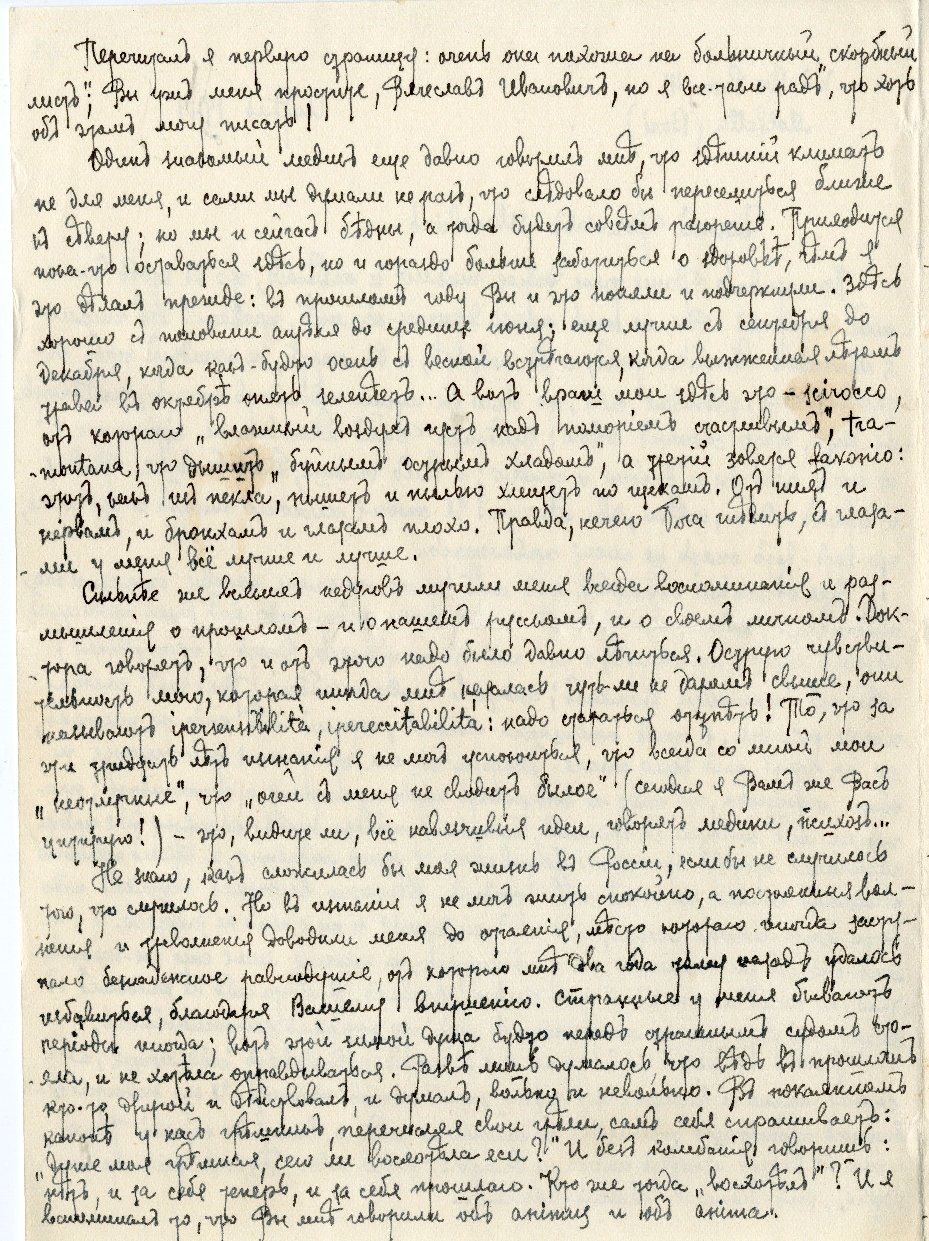 Перечиталъ я первую страницу: очень она похожа на больничный „скорбный
листъ“; Вы ужъ меня простите, Вячеславъ Ивановичъ, но я все-таки радъ, что хоть
объ этомъ могу писать!
Одинъ знакомый медикъ еще давно говорилъ мнѣ, что здѣшній климатъ
не для меня, и сами мы думали не разъ, что слѣдовало бы переселиться ближе
къ сѣверу; но мы и сейчасъ бѣдны, а тогда будетъ совсѣмъ разоренье. Приходится
пока-что оставаться здѣсь, но и гораздо больше заботиться о здоровьѣ, чѣмъ я
это дѣлалъ прежде: въ прошломъ году Вы и это поняли и подчеркнули. Здѣсь
хорошо съ половины апрѣля до средины іюня; еще лучше съ сентября до
декабря, когда какъ-будто осень съ весной встрѣчаются, когда выжженная лѣтомъ
трава въ октябрѣ опять зеленѣетъ... А вотъ враги мои здѣсь это – scirocco,
отъ котораго „влажный воздухъ густъ надъ поморіемъ счастливымъ“, tra-
montana, что дышитъ „буйнымъ острымъ хладомъ“, а третій зовется favonio:
этотъ, какъ изъ пекла, пышетъ и пылью хлещетъ по щекамъ. Отъ нихъ и
нервамъ, и бронхамъ и глазамъ плохо. Правда, нечего Бога гнѣвить, съ глаза-
ми у меня всё лучше и лучше.
Сильнѣе же всѣхъ недуговъ мучили меня всегда воспоминанія и раз-
мышленія о прошломъ – и о нашемъ русскомъ, и о своемъ личномъ. Док-
тора говорятъ, что и отъ этого надо было давно лѣчиться. Острую чувстви-
тельность мою, которая иногда мнѣ казалась чуть-ли не даромъ свыше, они
называютъ ipersensibilità, ipereccitabilità: надо стараться отупѣть! То, что за
эти тридцать лѣтъ изгнанія я не могъ успокоиться, что всегда со мной мои
„неотлучные“, что „очей съ меня не сводитъ былое“ (сегодня я Вамъ же Васъ
цитирую!) – это, видите ли, всё навязчивыя идеи, говорятъ медики, психозъ...
Не знаю, какъ сложилась бы моя жизнь въ Россіи, если бы не случилось
того, что случилось. Но въ изгнаніи я не могъ жить спокойно, а постоянныя вол-
ненія и треволненія доводили меня до отчаянія, мѣсто котораго иногда засту-
пало безнадежное равнодушіе, отъ котораго мнѣ два года тому назадъ удалось
избавиться, благодаря Вашему внушенію. Странные у меня бываютъ
періоды иногда; вотъ этой зимой душа будто передъ страшнымъ судомъ сто-
яла, и не хотѣла оправдываться. Развѣ лишь думалось что вѣдь въ прошломъ
кто-то другой и дѣйствовалъ, и думалъ, вольно и невольно. Въ покаянномъ
канонѣ у насъ грѣшникъ, перечисляя свои грѣхи, самъ себя спрашиваетъ:
„Душе моя грѣшная, сего ли восхотѣла еси?“ И безъ колебанія говоришь:
нѣтъ, и за себя теперь, и за себя прошлаго. Кто же тогда „восхотѣлъ“? И я
вспоминалъ то, что Вы мнѣ говорили объ animus и объ anima.